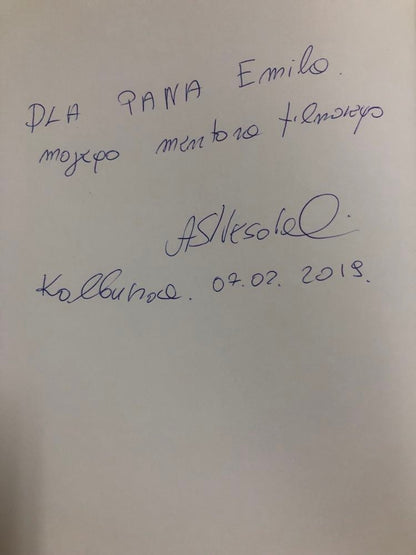 DLA PANA Emila.
mojego mentora filmowego
Kolbuszowa. 07.02. 2019.